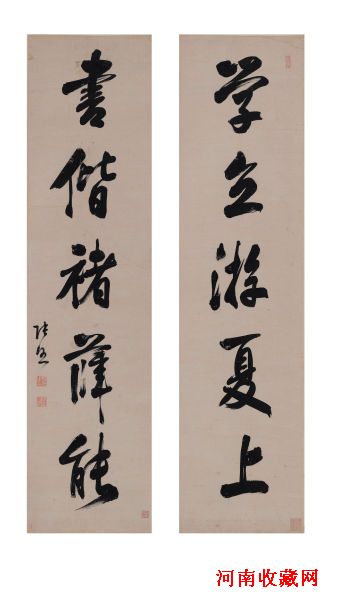 学立游夏上
書偕褚薛能
張照
河南收藏网